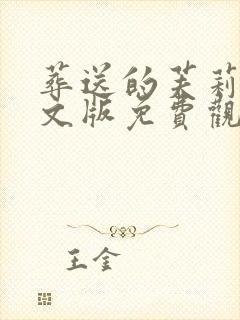 葬送的芙莉
文版免費觀
王金